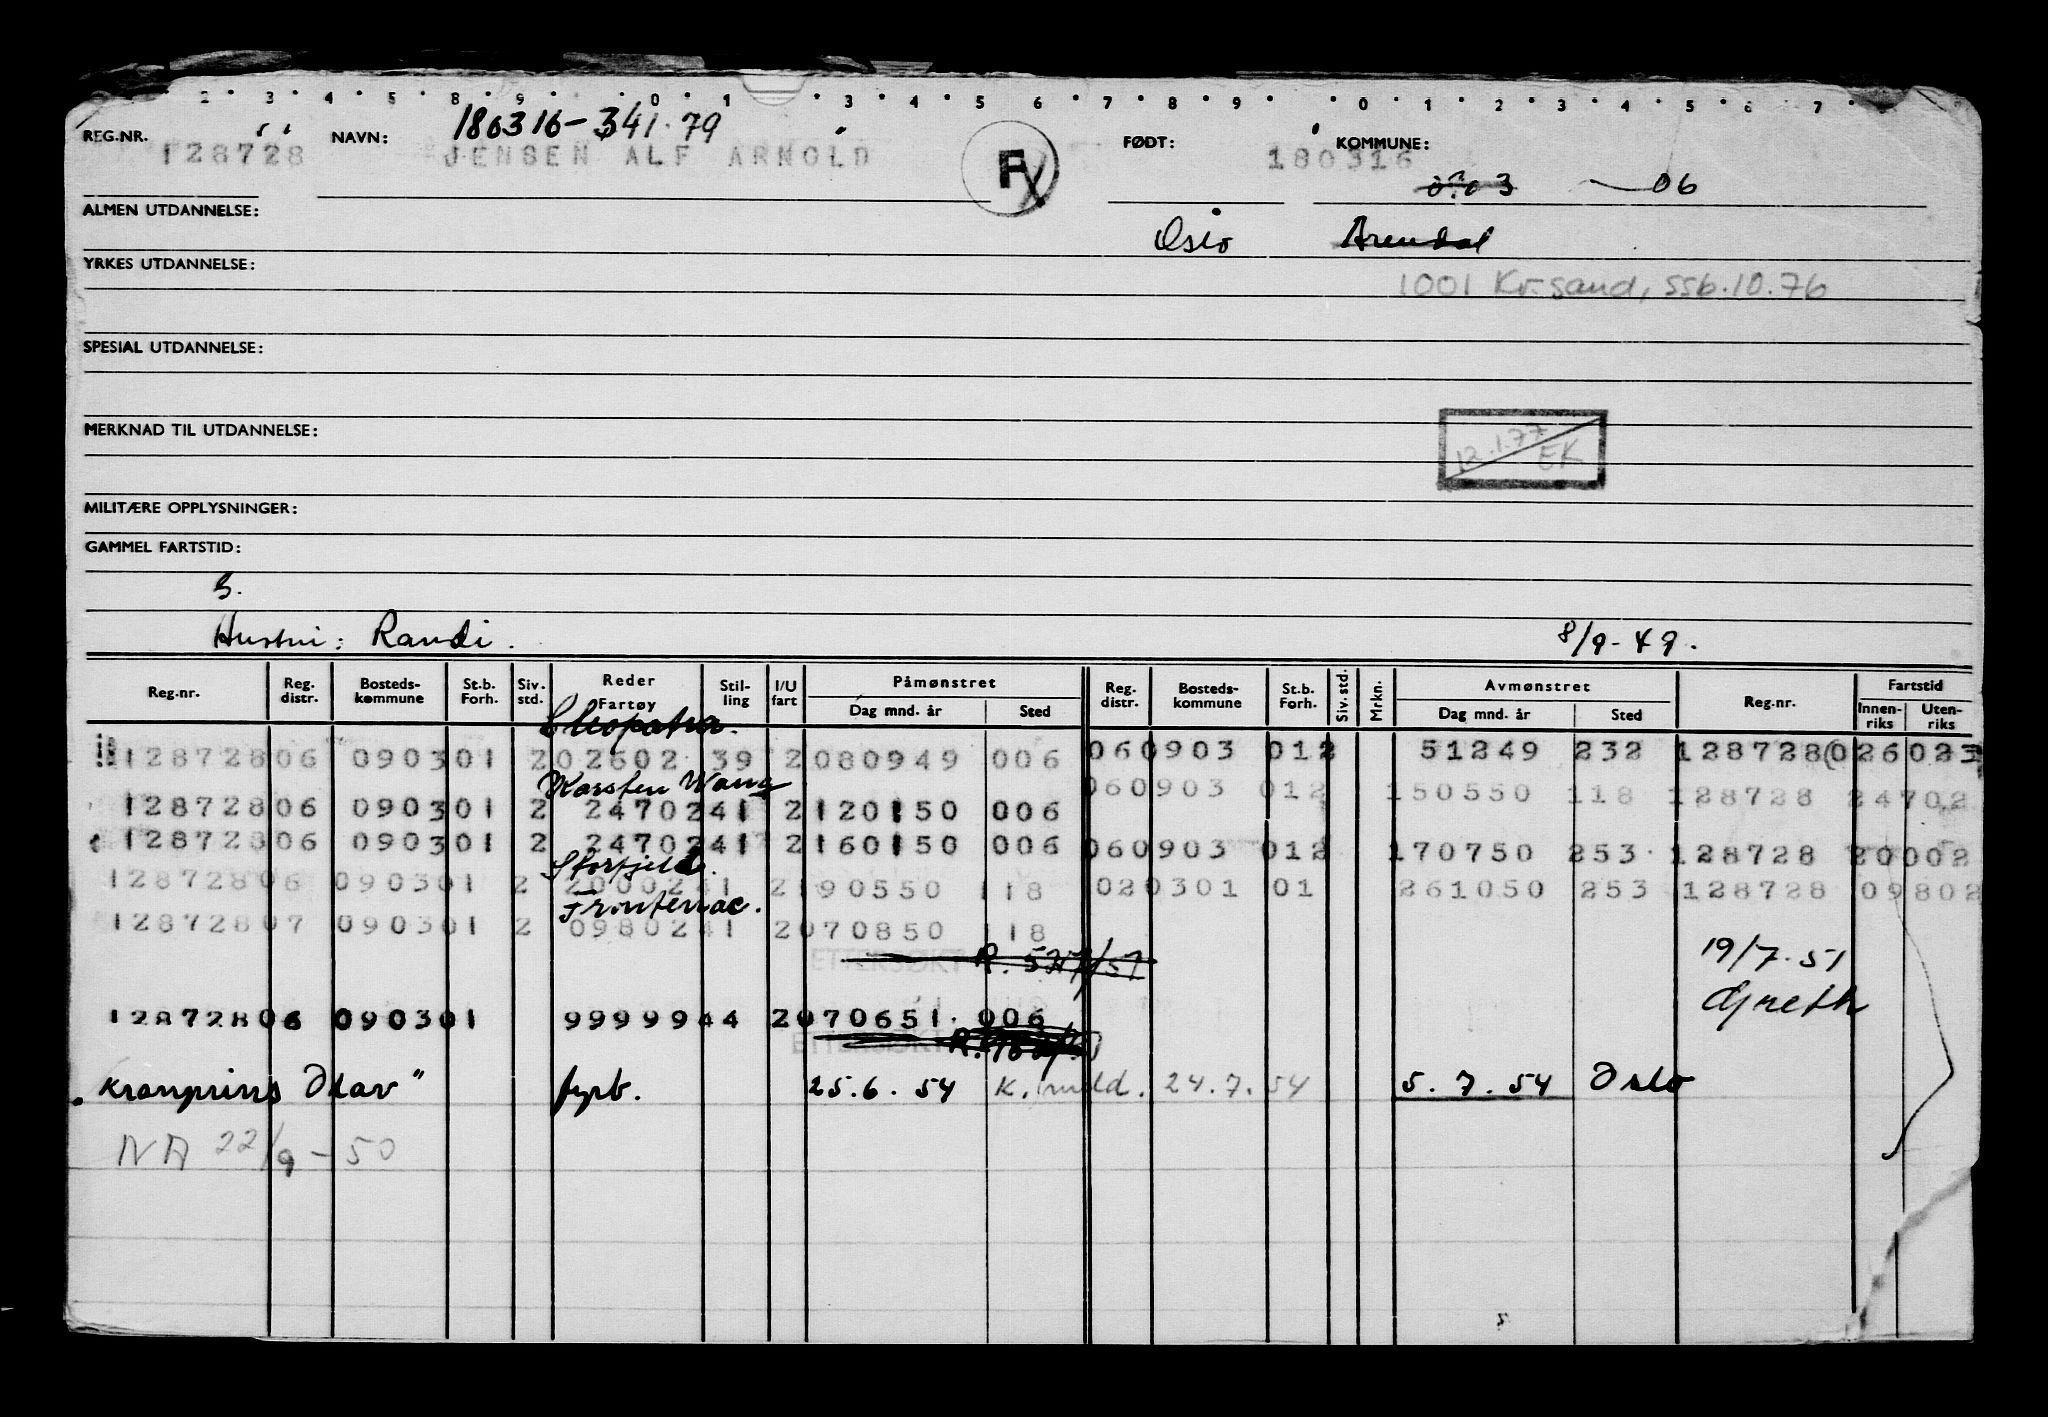 2 3 4 5 8 9 0 1 3 4 5 6 7 8 9 0 1 2 3 4 5 6 7
186316-341.79
REG.NR. 128728 NAVN: JENSEN ALF ARNOLD F FØDT: 180316 KOMMUNE:
03 06
ALMEN UTDANNELSE:
Oslo Arendal
YRKES UTDANNELSE:
1001 Kr.sand, ssb.10.76
SPESIAL UTDANNELSE:
MERKNAD TIL UTDANNELSE:
12.1.77 EK
MILITÆRE OPPLYSNINGER:
GAMMEL FARTSTID:
Hustru: Randi. 8/9-49.
Reg.nr. Reg. distr. Bosteds-kommune St.b. Forh. Siv. std. Reder Fartøy Stil-ling I/U fart Påmønstret Dag mnd. år Sted Reg. distr. Bosteds-kommune St.b. Forh. Siv. std. Mrkn. Avmønstret Dag mnd. år Sted Reg.nr. Fartstid Innen-riks Uten-riks
Cleopatra.
128728 06 0903 01 2 02602 39 2 080949 006 06 0903 01 2 51249 232 128728 026023
Karsten Wang
128728 06 0903 01 2 24702 41 2 120150 006 06 0903 01 2 150550 118 128728 24702
128728 06 0903 01 2 24702 41 2 160150 006 06 0903 01 2 170750 253 128728 20002
Storfjeld.
128728 06 0903 01 2 20002 41 2 190550 118 02 0301 01 261050 253 128728 09802
Frontenac.
128728 07 0903 01 2 09802 41 2 070850 118
ETTERSØKT R. 19/7.51
Greth
128728 06 0903 01 99999 44 2 070651 006
ETTERSØKT
"Kronprins Olav" fyrb. 25.6.54 K. 24.7.54 5.7.54 Oslo
NA 22/9-50